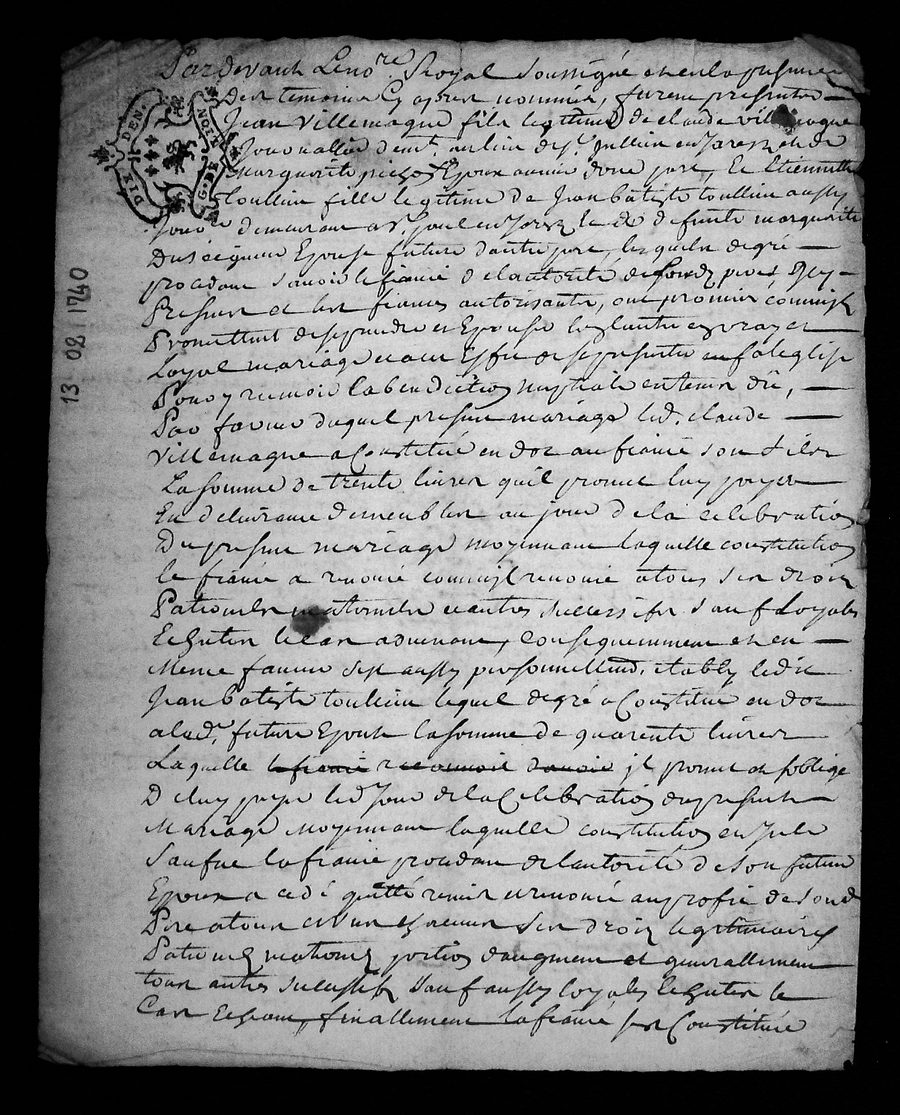 Pardevant Le no.re Royal soussigné et en la presence
Des temoins Cy apres nommés, furent presents
Jean Villemagne fils legitime de claude villemagne
Journallier dem.t au lieu de s.t jullien en Jarest et de
marguerite Epoux avenir d'one part, Et Etiennette
Toullieu fille legitime de Jean batiste toullieu aussy
Jour.r demeurant a s.t paul en Jarez et de defunte marguerite
Duseigneur Epouse future d'autre part, lesquels de gré
procedant sçavoir le fiancé de l'autorité de sond. pere
Present et les fiances autorisante, ont promis comme ils
Promettent de se prendre et Epouser l'un l'autre en vray et
Loyal mariage et a cet Effet de se presenter en face leglise
Pour y recevoir la benediction nuptiale en tems dû,
Par faveur duquel present mariage led. claude
Villemagne a Constitué en dot au fiancé son fils
La somme de trente livres qu'il promet luy payer
En delivrance de meubles au jour de la celebration
Du present mariage moyennant laquelle constitution
le fiancé a renoncé comme il renonce a tous ses droits
Patrornels maternels et autres successifs sauf Loyales
Echutes le cas advenant, Consequemment et en
Meme faveur s'est aussy personnellem.t etably ledit
Jean batiste toullieu lequel de gré a Constitué en dot
a lad. future Epouse la somme de quarente livres
Laquelle le fiancé reconnoit d'avoir jl promet et s'oblige
De luy payer led. Jour de la Celebration du present
Mariage Moyennant laquelle constitution
la fiancée procedant de l'autorité de son futur
Epoux a cedé quitté remis et renoncé au profit de sond.
Pere a tous et un chacuns ses droits legitimaires
Paternels maternels portion d'augment et generallement
tous autres successifs sauf aussy loyales Echutes le
Cas Echeant, finallement la fiancée s'est Constituée
DIX DEN.
G. DE LYON
13 02 1740